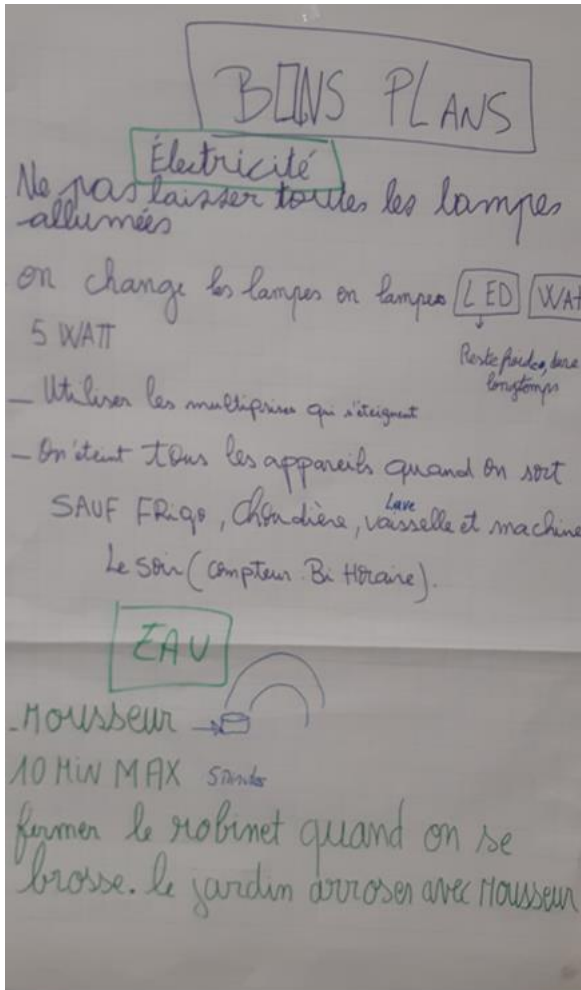 BONS PLANS
Électricité
Ne pas laisser toutes les lampes
allumées
on change les lampes en lampes LED WAT
5 WATT
Reste froides, dure
longtemps
- Utiliser les multiprises qui s'éteignent
- On éteint tous les appareils quand on sort
SAUF FRigo, Chaudière, Lave vaisselle et machine
Le soir (compteur Bi Horaire).
EAU
- Mousseur
10 MiN MAX
fermer le robinet quand on se
brosse. le jardin arroser avec Mousseur